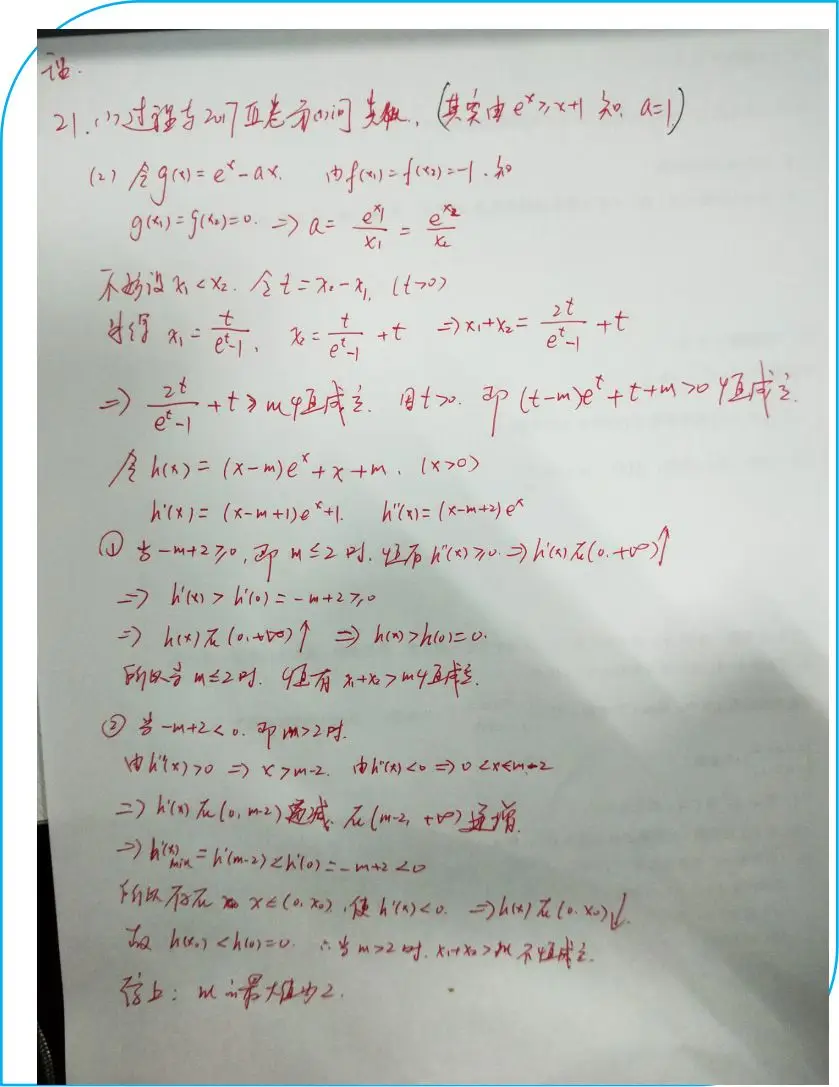 21.(1)过程与2017亚卷第(1)问类似.(其实由 e^x≥x+1 知. a=1)
(2) 令g(x)=e^x-ax. 由f(x₁)=f(x₂)=-1.知
g(x₁)=g(x₂)=0. ⇒ a= e^x₁/x₁ = e^x₂/x₂
不妨设 x₁<x₂. 令t=x₂-x₁, (t>0)
x₁= t/(e^t-1), x₂= t/(e^t-1) +t ⇒x₁+x₂= 2t/(e^t-1) +t
⇒ 2t/(e^t-1) +t>m恒成立. 因t>0. 即 (t-m)e^t+t+m>0 恒成立.
令 h(x)=(x-m)e^x+x+m. (x>0)
h'(x)=(x-m+1)e^x+1. h''(x)=(x-m+2)e^x
① 当-m+2≥0, 即 m≤2时. 恒有 h''(x)≥0.⇒h'(x)在(0.+∞)↑
⇒ h'(x)>h'(0)=-m+2≥0
⇒ h(x)在(0,+∞)↑ ⇒ h(x)>h(0)=0.
所以当 m≤2时. 恒有 x₁+x₂>m恒成立.
② 当-m+2<0. 即m>2时.
由h''(x)>0 ⇒ x>m-2. 由h''(x)<0 ⇒0<x<m-2
⇒h'(x)在(0,m-2)递减. 在(m-2,+∞)递增.
⇒h'(x)min=h'(m-2)<h'(0)=-m+2<0
所以存在 x∈(0,x₀),使h'(x)<0. ⇒h(x)在(0.x₀)↓.
故 h(x₀)<h(0)=0. ∴当 m>2时. x₁+x₂>m 不恒成立.
综上: m的最大值为2.